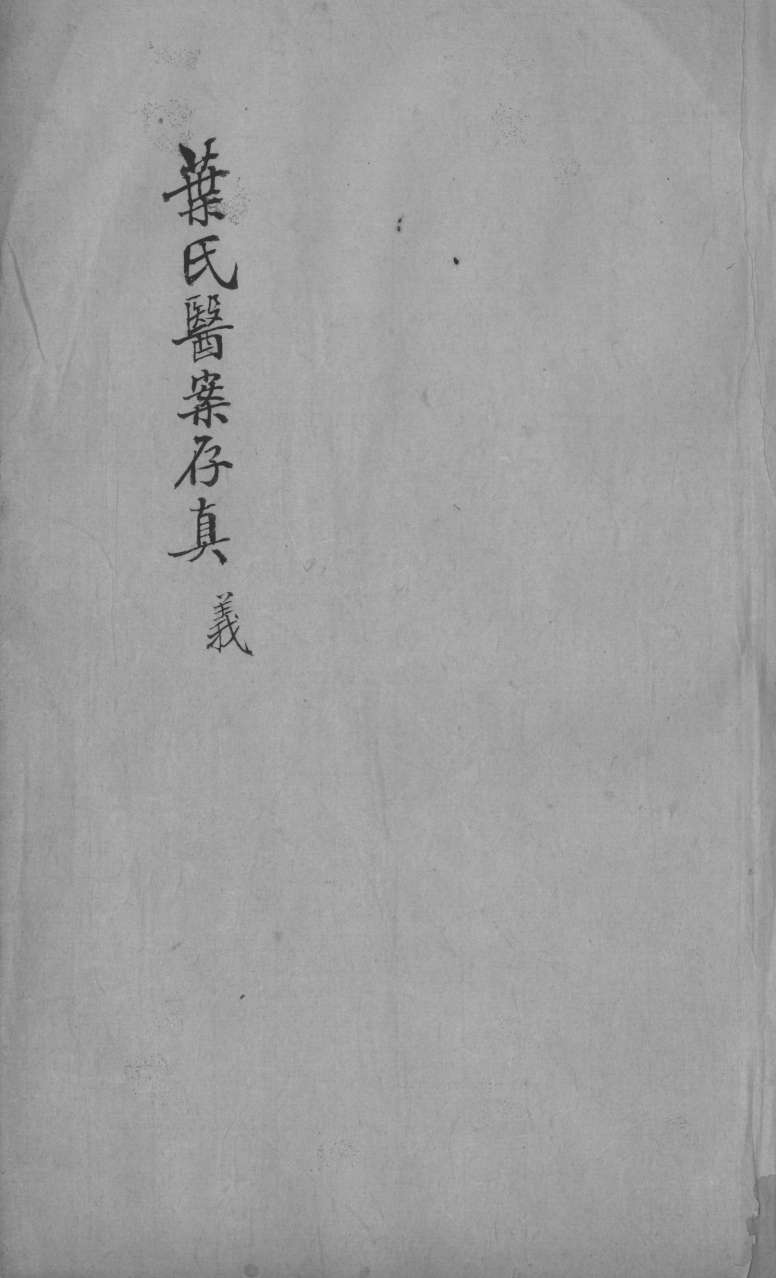 葉氏醫案存真 義